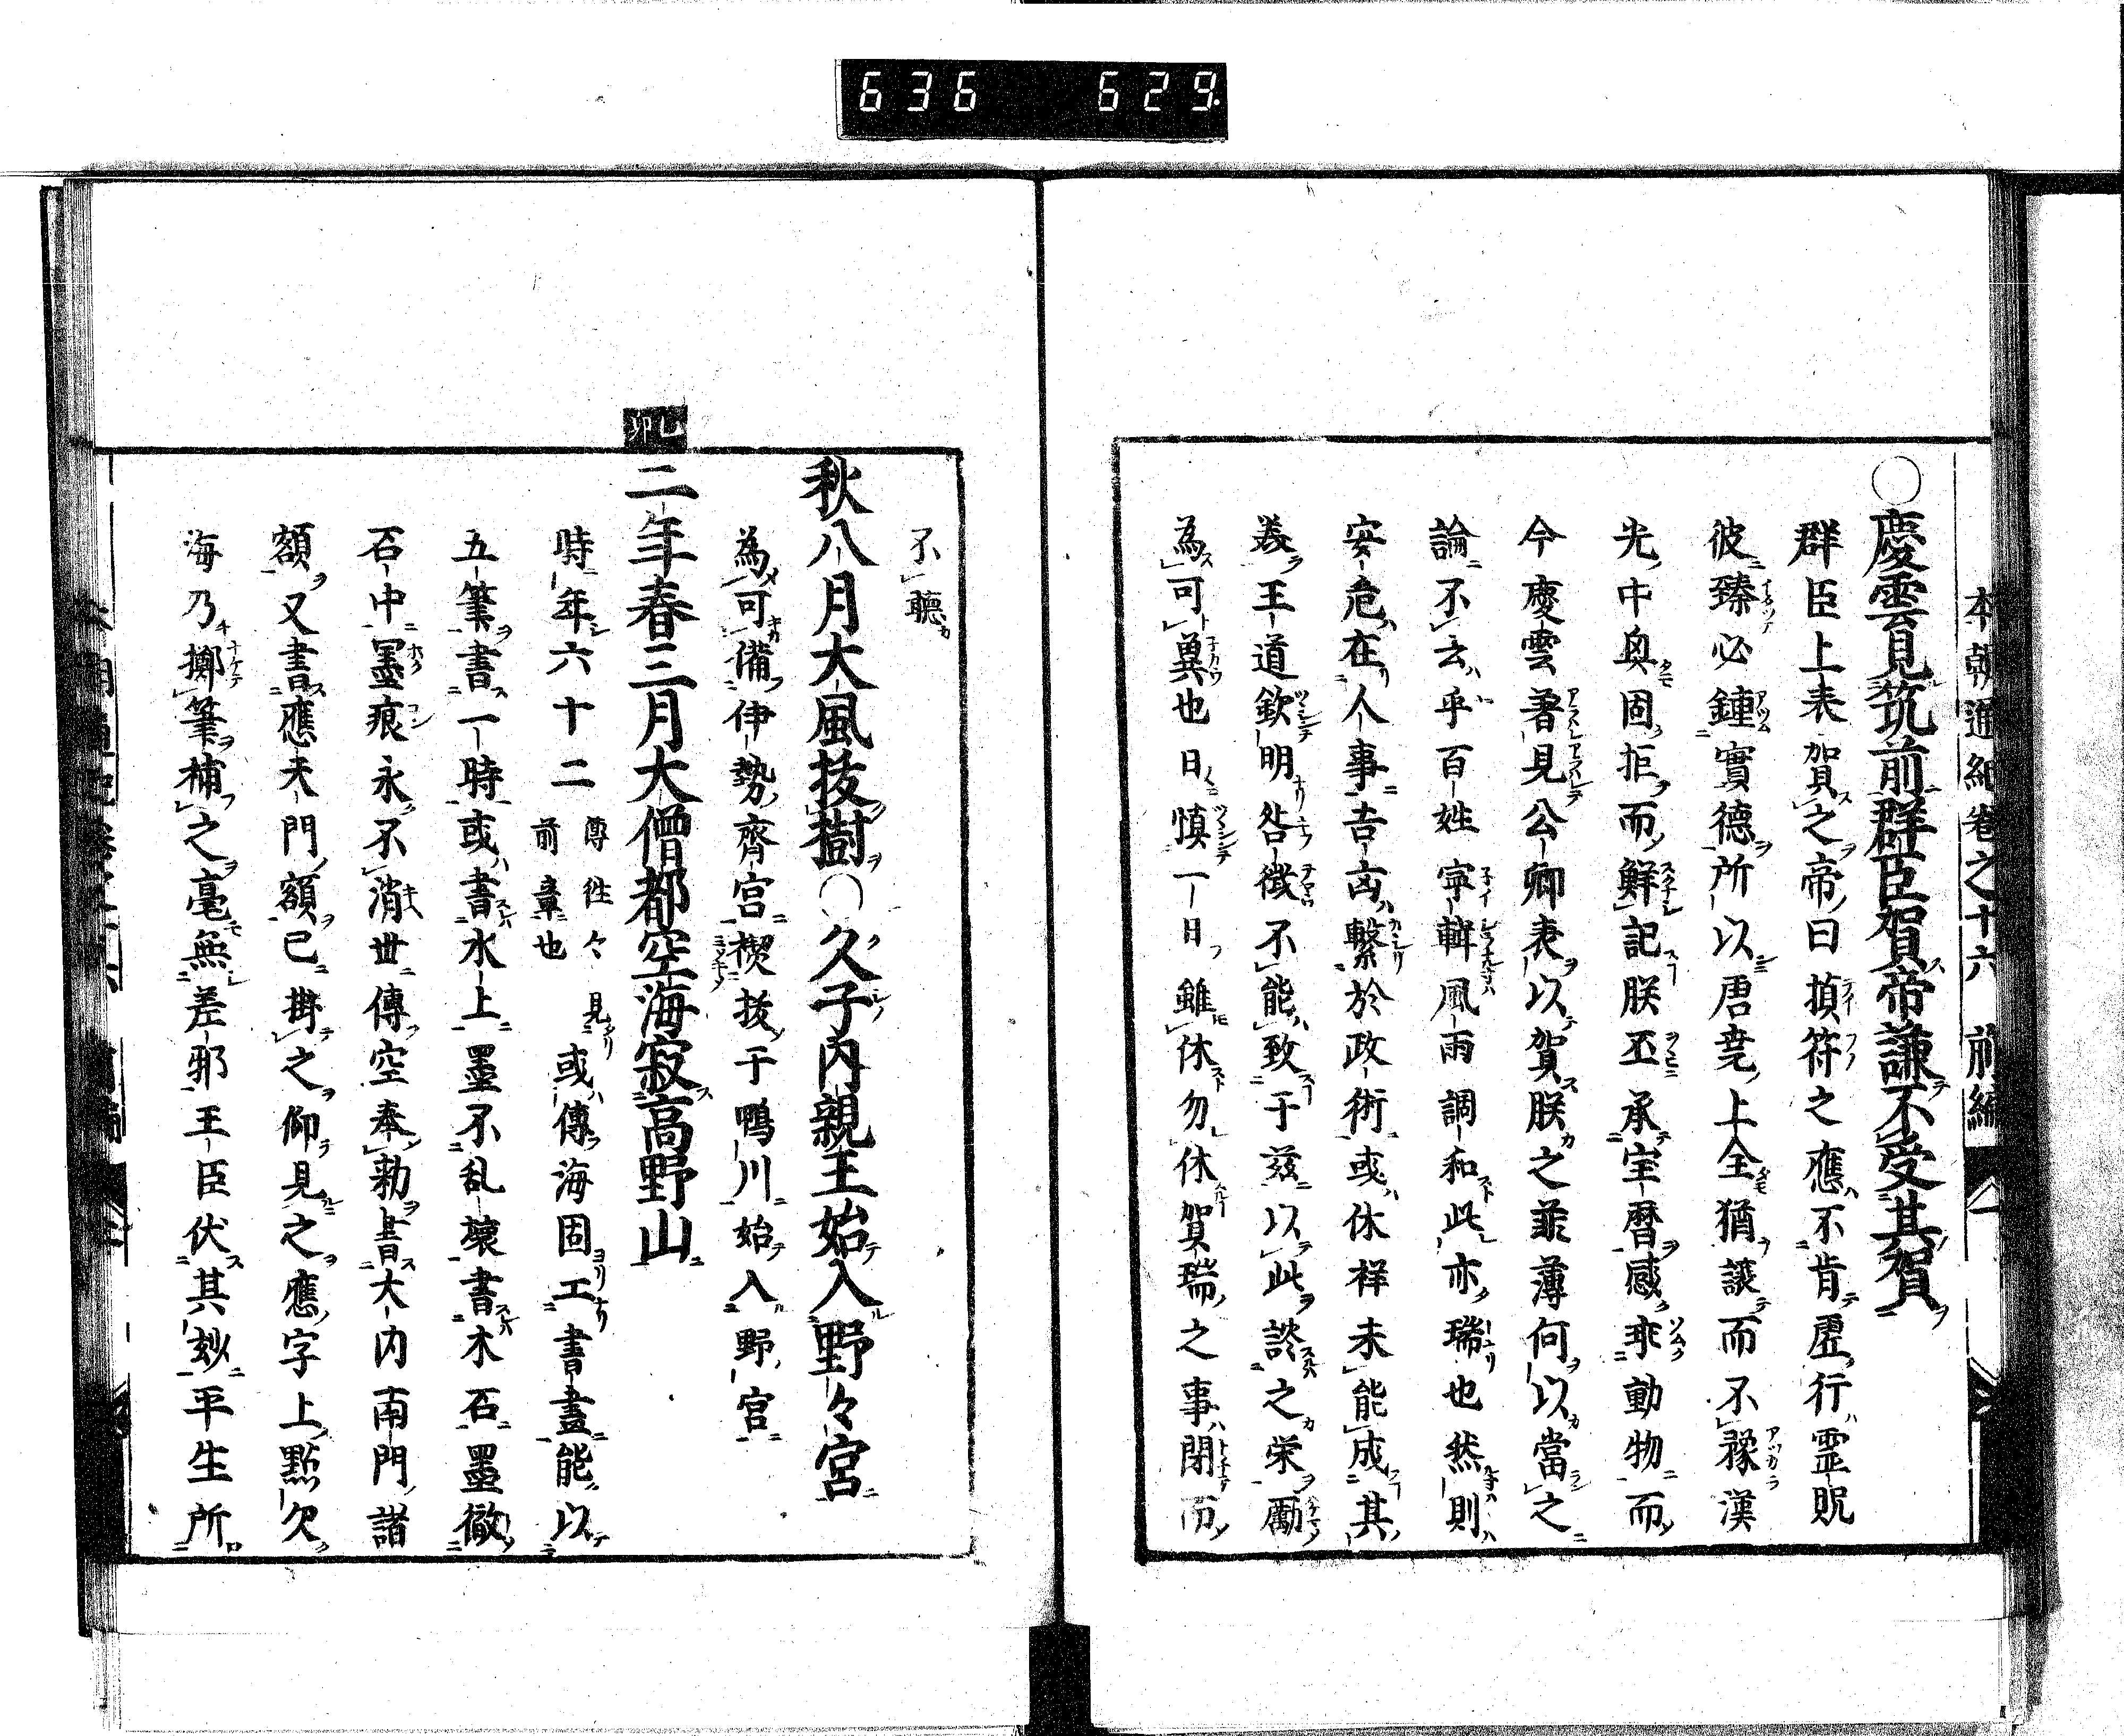 636 629
本朝通紀巻之十六 前編
〇慶雲見筑前群臣賀帝謙不受其賀
群臣上表賀之帝曰禎符之應不肯虚行霊貺
彼臻必鍾實德所以唐堯上全猶譲而不豫漢
光中奥固拒而鮮記朕丕承宝暦感乖動物而
今慶雲著見公卿表以賀朕之菲薄何以當之
論不云乎百姓寧輯風雨調和此亦瑞也然則
安危在人事吉凶繫於政術或休祥未能成其
義王道欽明咎徴不能致于茲以此談之栄勵
為可異也日慎一日雖休勿休賀瑞之事閉而
不聴
秋八月大風抜樹〇久子内親王始入野々宮
為可備伊勢齊宮禊抜于鴨川始入野宮
乙卯
二年春三月大僧都空海寂高野山
時年六十二傳徃々見前章也或傳海固工書盡能以
五筆書一時或書水上墨不乱壊書木石墨徹
石中墨痕永不消丗傳空奉勅書大内南門諸
額又書應天門額已掛之仰見之應字上點欠
海乃擲筆補之毫無差邪王臣伏其妙平生所